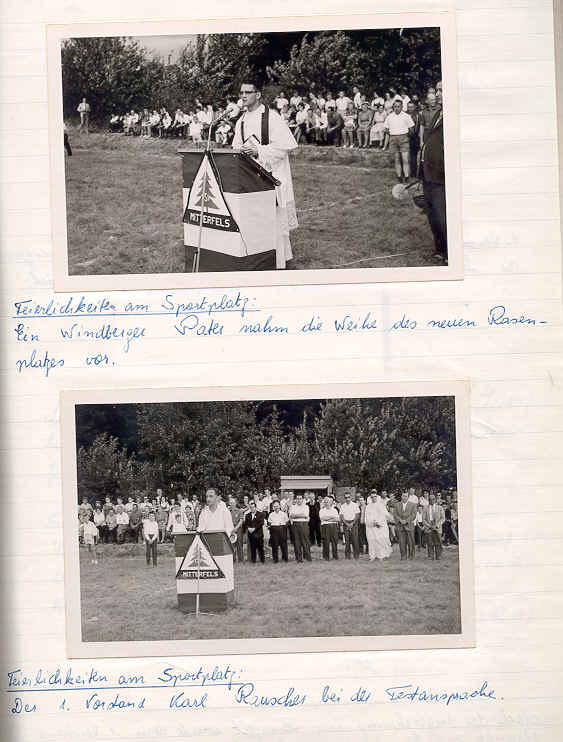 MITTERFELS
Feierlichkeiten am Sportplatz:
Ein Windberger Pater nahm die Weihe des neuen Rasen-
platzes vor.
MITTERFELS
Feierlichkeiten am Sportplatz:
Der 1. Vorstand Karl Rauscher bei der Festansprache.